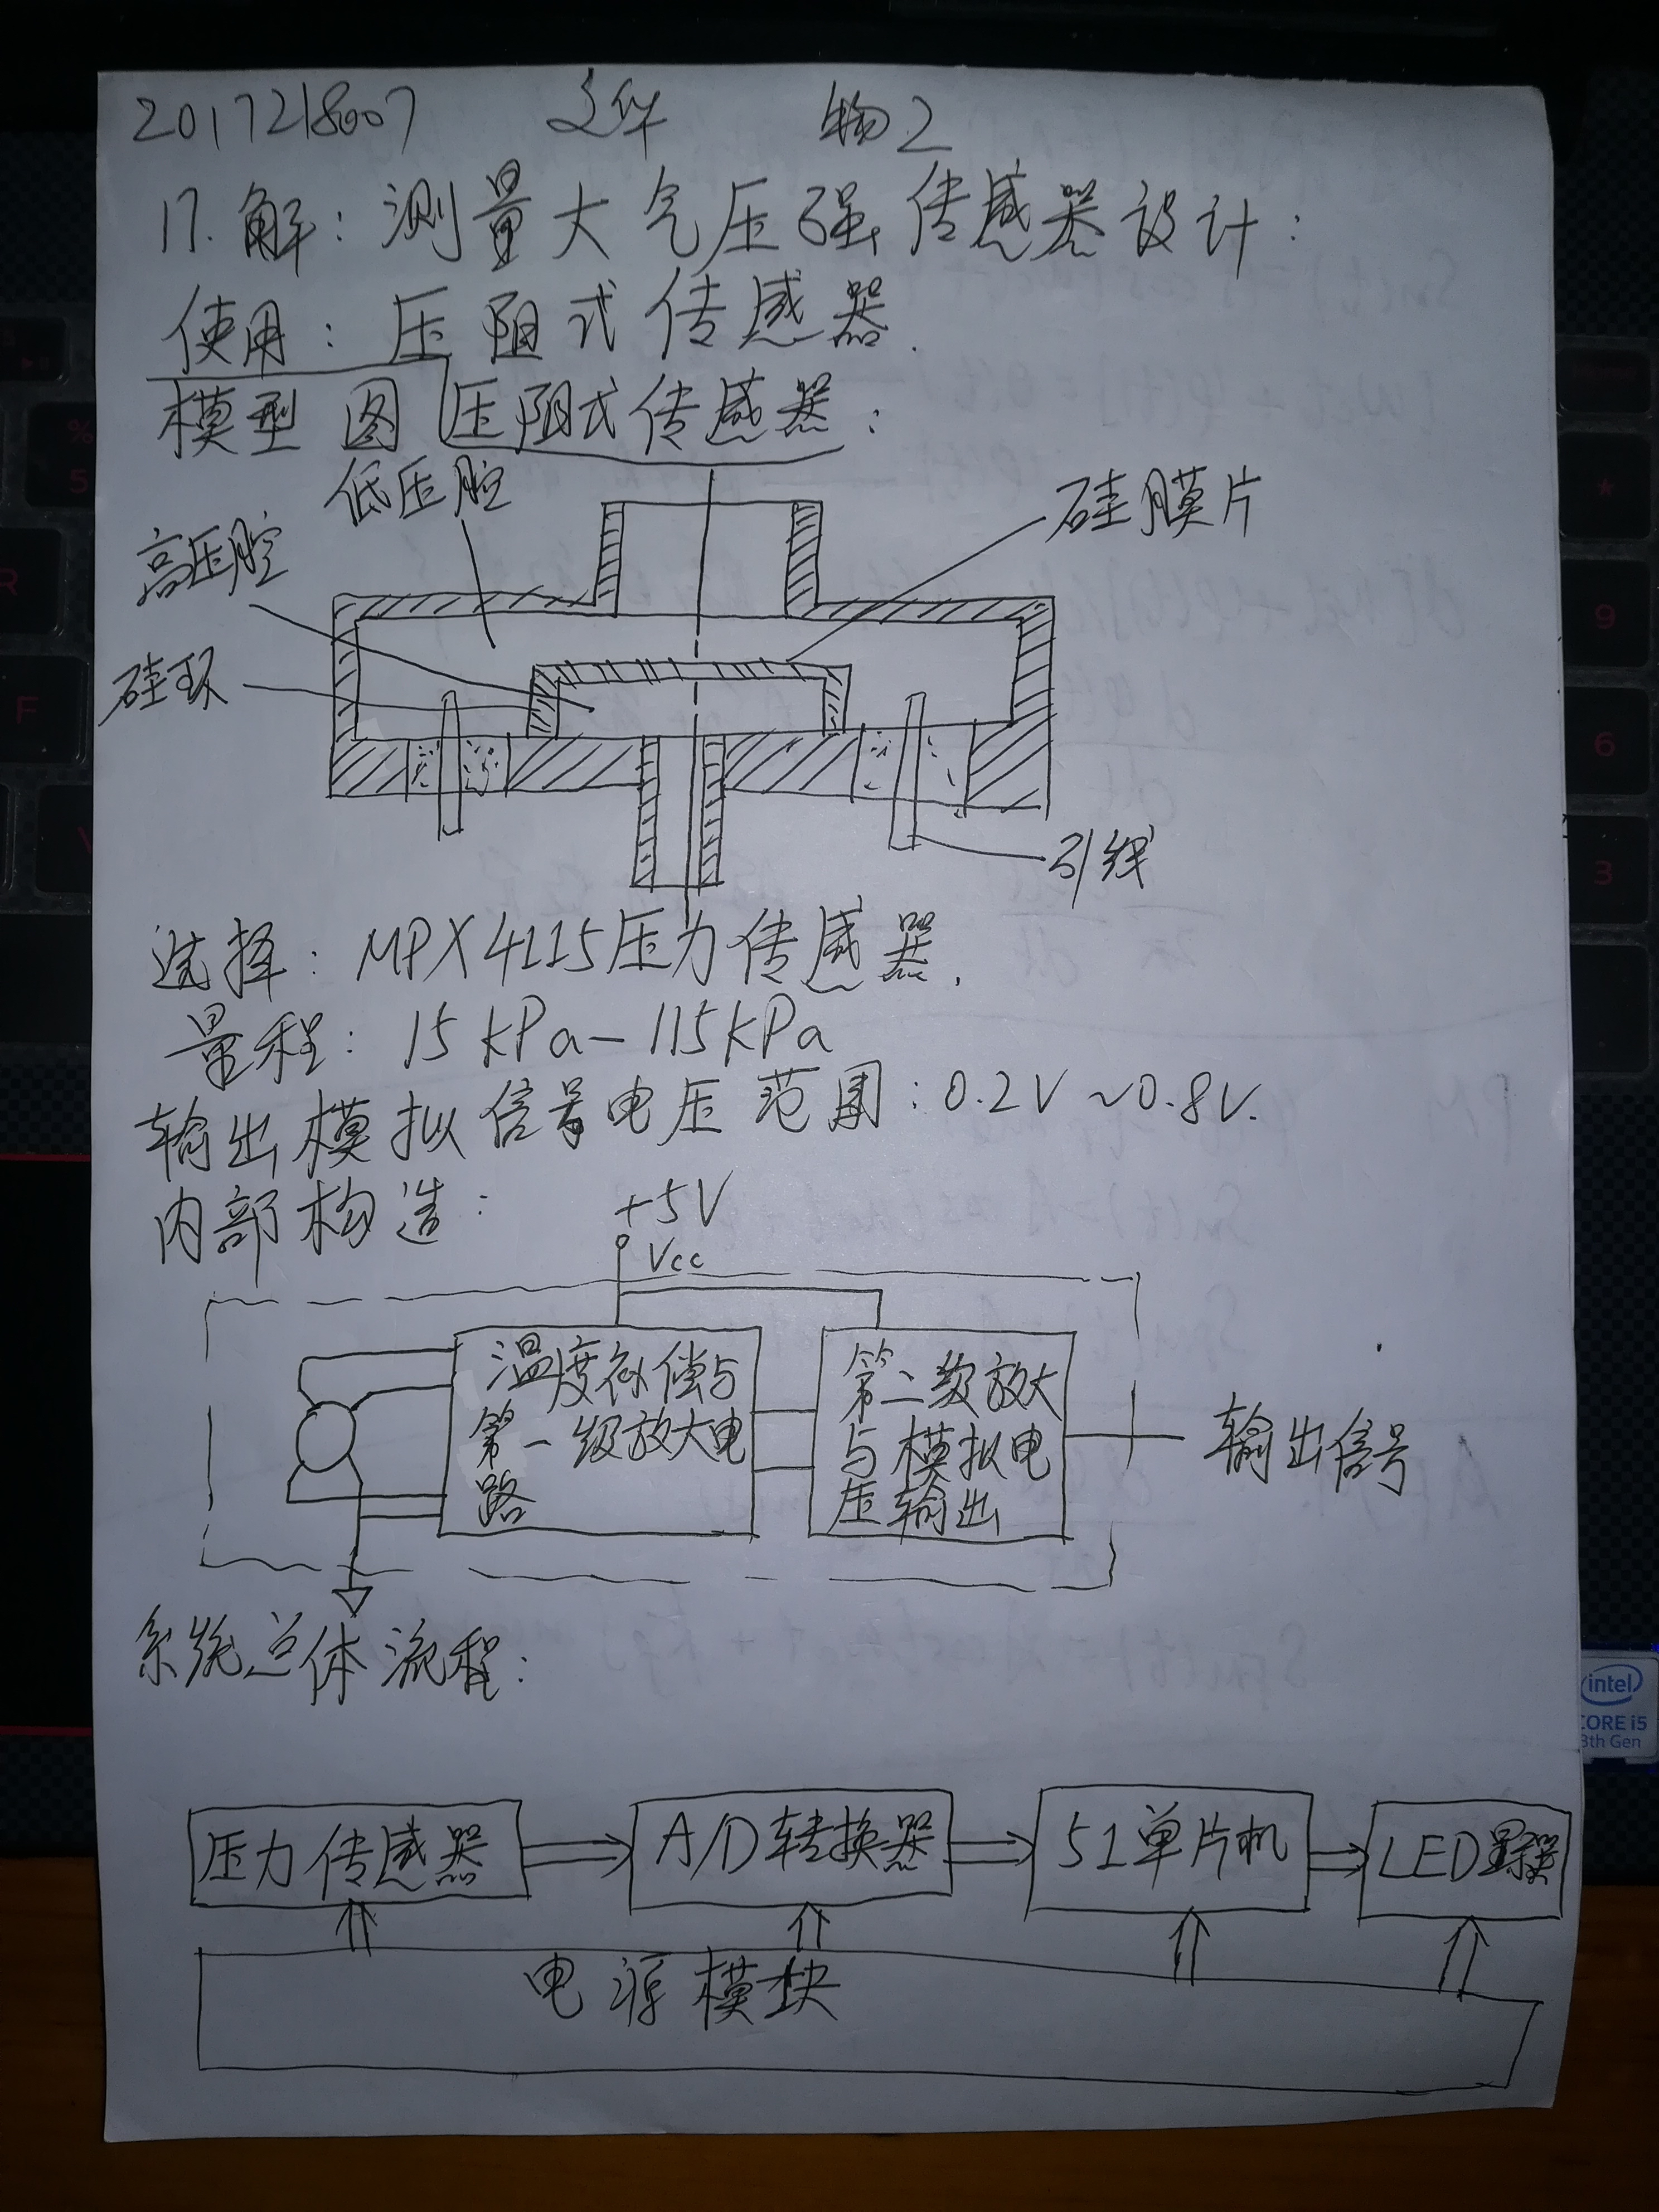 2017218007 文华 物2
17.解:测量大气压强传感器设计:
使用:压阻式传感器.
模型图 压阻式传感器:
低压腔
硅膜片
高压腔
硅环
引线
选择:MPX4115压力传感器.
量程:15kPa-115kPa
输出模拟信号电压范围:0.2V~0.8V.
内部构造:
+5V
Vcc
温度补偿与
第一级放大电
路
第二级放大
与模拟电
压输出
输出信号
系统总体流程:
压力传感器
A/D转换器
51单片机
LED显示器
电源模块
intel
CORE i5
8th Gen
%
5
R
F
V
*
9
6
3